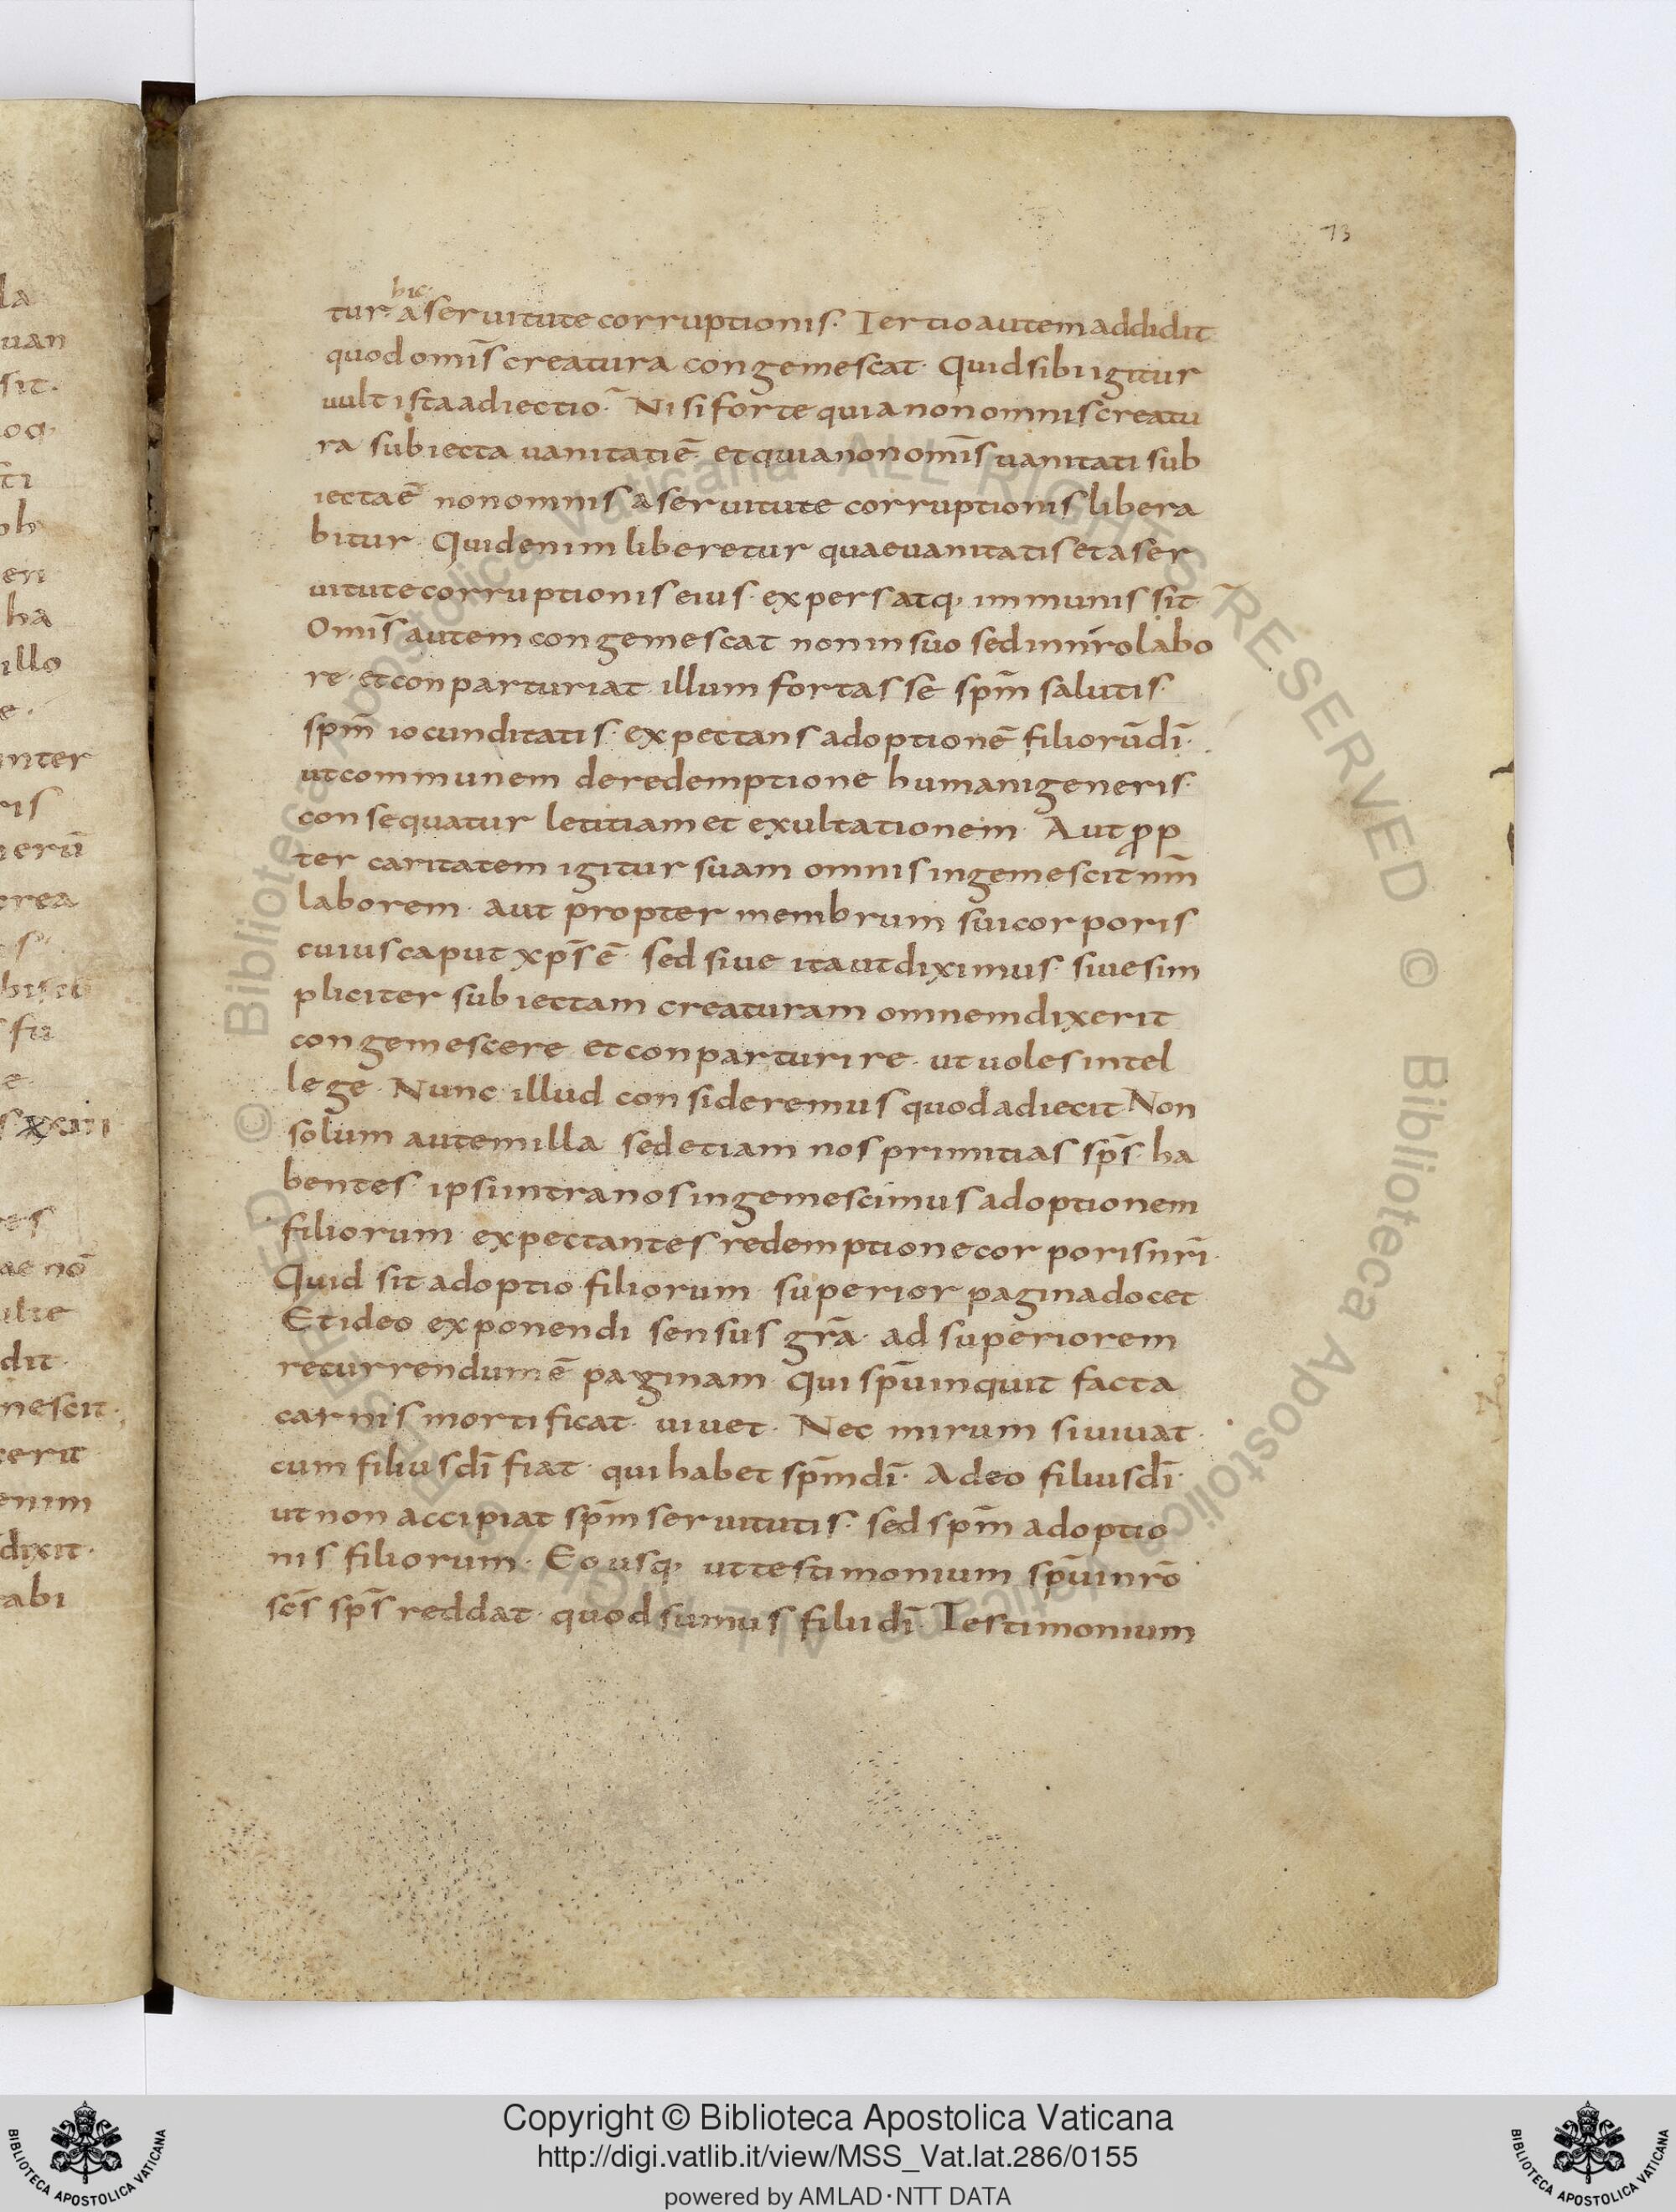 73
hic.
tur· a seruitute corruptionis· Tertio autem addidit
quod omīs creatura congemescat· Quid sibi igitur
uult ista adiectio· Nisi forte quia non omnis creatu
ra subiecta uanitati ē et quia non omīs uanitati sub
iecta ē non omnis a seruitute corruptionis libera
bitur· Quid enim liberetur quae uanitatis et a ser
uitute corruptionis eius· expers atq, immunis sit·
Omīs autem congemescat non in suo sed in nr̄o labo
re· et conparturiat illum fortasse spm̄ salutis·
spm̄ iocunditatis· expectans adoptionē filiorū dī·
ut communem de redemptione humani generis·
consequatur letitiam et exultationem· Aut prop
ter caritatem igitur suam omnis ingemescit nr̄m
laborem· aut propter membrum sui corporis
cuius caput xp̄s ē· sed siue ita ut diximus· siue sim
pliciter subiectam creaturam omnem dixerit
congemescere et conparturire· ut uoles intel
lege· Nunc illud consideremus quod adiecit Non
solum autem illa sed etiam nos primitias sp̄s· ha
bentes· ipsi intra nos ingemescimus adoptionem
filiorum expectantes redemptione corporis nr̄i·
Quid sit adoptio filiorum superior pagina docet
Et ideo exponendi sensus gr̄a· ad superiorem
recurrendum ē paginam· Qui spū inquit facta
carnis mortificat· uiuet· Nec mirum si uiuat·
cum filius dī fiat· qui habet spm̄ dī· Adeo filius dī·
ut non accipiat spm̄ seruitutis· sed spm̄ adoptio
nis filiorum· Eo usq, ut testimonium spūi nr̄o
sc̄s sp̄s reddat· quod sumus filii dī· Testimonium
© Biblioteca Apostolica Vaticana ALL RIGHTS RESERVED
© Biblioteca Apostolica Vaticana ALL RIGHTS RESERVED
Copyright © Biblioteca Apostolica Vaticana
http://digi.vatlib.it/view/MSS_Vat.lat.286/0155
powered by AMLAD·NTT DATA
BIBLIOTECA APOSTOLICA VATICANA
BIBLIOTECA APOSTOLICA VATICANA